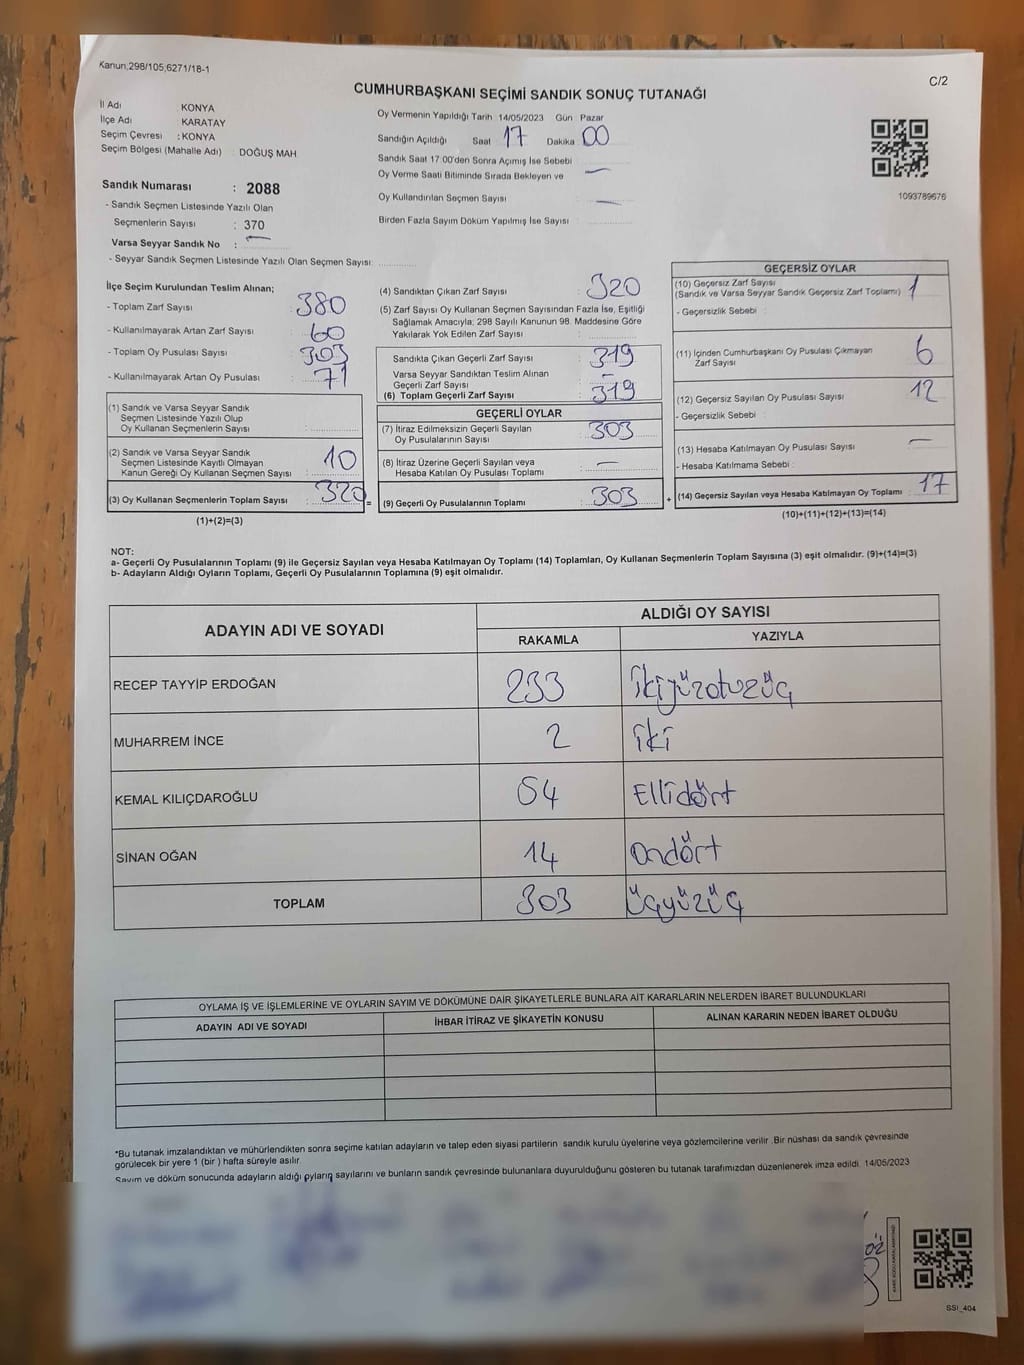 Kanun,298/105,6271/18-1
C/2
CUMHURBAŞKANI SEÇİMİ SANDIK SONUÇ TUTANAĞI
İl Adı KONYA
İlçe Adı : KARATAY
Seçim Çevresi : KONYA
Seçim Bölgesi (Mahalle Adı) : DOĞUŞ MAH
Sandık Numarası : 2088
- Sandık Seçmen Listesinde Yazılı Olan
Seçmenlerin Sayısı : 370
Varsa Seyyar Sandık No : —
- Seyyar Sandık Seçmen Listesinde Yazılı Olan Seçmen Sayısı:
Oy Vermenin Yapıldığı Tarih 14/05/2023 Gün : Pazar
Sandığın Açıldığı Saat 17 Dakika : 00
Sandık Saat 17:00'den Sonra Açımış İse Sebebi
Oy Verme Saati Bitiminde Sırada Bekleyen ve —
Oy Kullandırılan Seçmen Sayısı : —
Birden Fazla Sayım Döküm Yapılmış İse Sayısı
1093789676
İlçe Seçim Kurulundan Teslim Alınan;
- Toplam Zarf Sayısı : 380
- Kullanılmayarak Artan Zarf Sayısı : 60
- Toplam Oy Pusulası Sayısı : 303
- Kullanılmayarak Artan Oy Pusulası : 71
(1) Sandık ve Varsa Seyyar Sandık
Seçmen Listesinde Yazılı Olup
Oy Kullanan Seçmenlerin Sayısı :
(2) Sandık ve Varsa Seyyar Sandık
Seçmen Listesinde Kayıtlı Olmayan
Kanun Gereği Oy Kullanan Seçmen Sayısı : 10
(3) Oy Kullanan Seçmenlerin Toplam Sayısı : 320 =
(1)+(2)=(3)
(4) Sandıktan Çıkan Zarf Sayısı : 320
(5) Zarf Sayısı Oy Kullanan Seçmen Sayısından Fazla İse, Eşitliği
Sağlamak Amacıyla; 298 Sayılı Kanunun 98. Maddesine Göre
Yakılarak Yok Edilen Zarf Sayısı :
Sandıkta Çıkan Geçerli Zarf Sayısı : 319
Varsa Seyyar Sandıktan Teslim Alınan
Geçerli Zarf Sayısı : —
(6) Toplam Geçerli Zarf Sayısı : 319
GEÇERLİ OYLAR
(7) İtiraz Edilmeksizin Geçerli Sayılan
Oy Pusulalarının Sayısı : 303
(8) İtiraz Üzerine Geçerli Sayılan veya
Hesaba Katılan Oy Pusulası Toplamı : —
(9) Geçerli Oy Pusulalarının Toplamı : 303 +
GEÇERSİZ OYLAR
(10) Geçersiz Zarf Sayısı
(Sandık ve Varsa Seyyar Sandık Geçersiz Zarf Toplamı) : 1
- Geçersizlik Sebebi :
(11) İçinden Cumhurbaşkanı Oy Pusulası Çıkmayan
Zarf Sayısı : 6
(12) Geçersiz Sayılan Oy Pusulası Sayısı : 12
- Geçersizlik Sebebi :
(13) Hesaba Katılmayan Oy Pusulası Sayısı : —
- Hesaba Katılmama Sebebi :
(14) Geçersiz Sayılan veya Hesaba Katılmayan Oy Toplamı : 17
(10)+(11)+(12)+(13)=(14)
NOT:
a- Geçerli Oy Pusulalarının Toplamı (9) ile Geçersiz Sayılan veya Hesaba Katılmayan Oy Toplamı (14) Toplamları, Oy Kullanan Seçmenlerin Toplam Sayısına (3) eşit olmalıdır. (9)+(14)=(3)
b- Adayların Aldığı Oyların Toplamı, Geçerli Oy Pusulalarının Toplamına (9) eşit olmalıdır.
ADAYIN ADI VE SOYADI ALDIĞI OY SAYISI
RAKAMLA YAZIYLA
RECEP TAYYİP ERDOĞAN 233 ikiyüzotuzüç
MUHARREM İNCE 2 iki
KEMAL KILIÇDAROĞLU 54 Ellidört
SİNAN OĞAN 14 Ondört
TOPLAM 303 üçyüzüç
OYLAMA İŞ VE İŞLEMLERİNE VE OYLARIN SAYIM VE DÖKÜMÜNE DAİR ŞİKAYETLERLE BUNLARA AİT KARARLARIN NELERDEN İBARET BULUNDUKLARI
ADAYIN ADI VE SOYADI İHBAR İTİRAZ VE ŞİKAYETİN KONUSU ALINAN KARARIN NEDEN İBARET OLDUĞU
*Bu tutanak imzalandıktan ve mühürlendikten sonra seçime katılan adayların ve talep eden siyasi partilerin sandık kurulu üyelerine veya gözlemcilerine verilir .Bir nüshası da sandık çevresinde
görülecek bir yere 1 (bir ) hafta süreyle asılır.
Sayım ve döküm sonucunda adayların aldığı oyların sayılarını ve bunların sandık çevresinde bulunanlara duyurulduğunu gösteren bu tutanak tarafımızdan düzenlenerek imza edildi. 14/05/2023
SSI_404